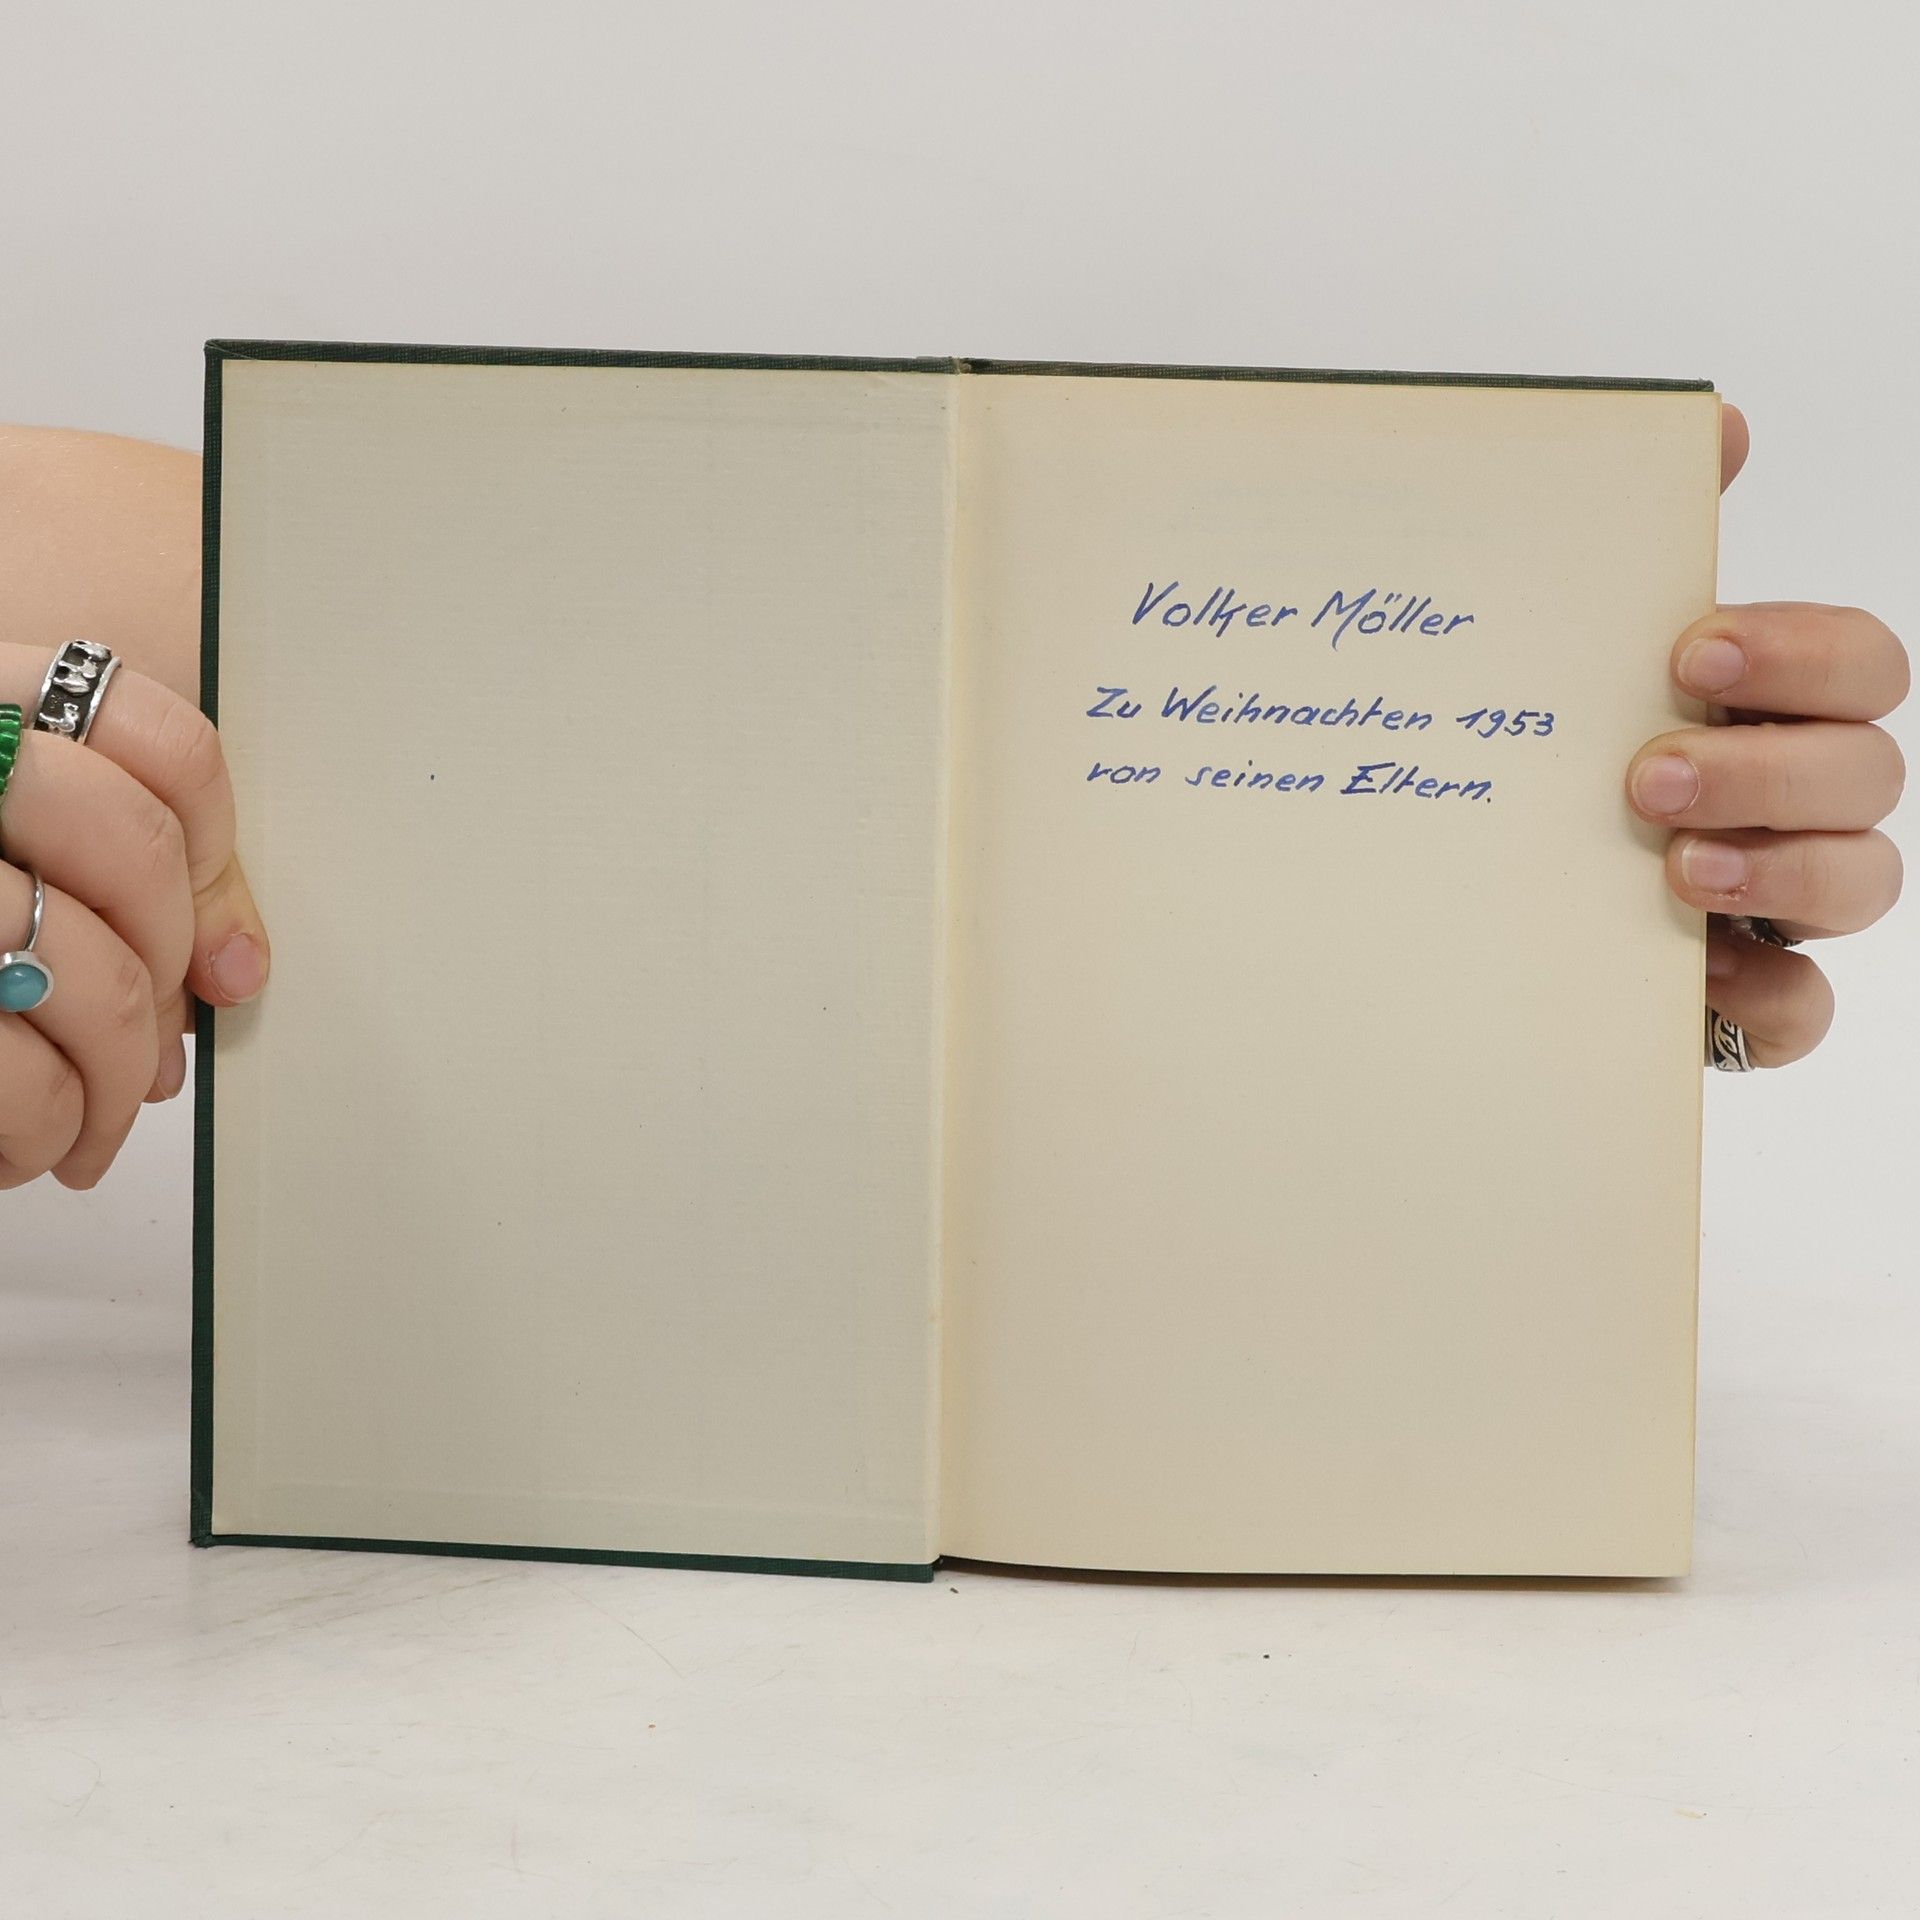 Volker Möller
Zu Weihnachten 1953
von seinen Eltern.